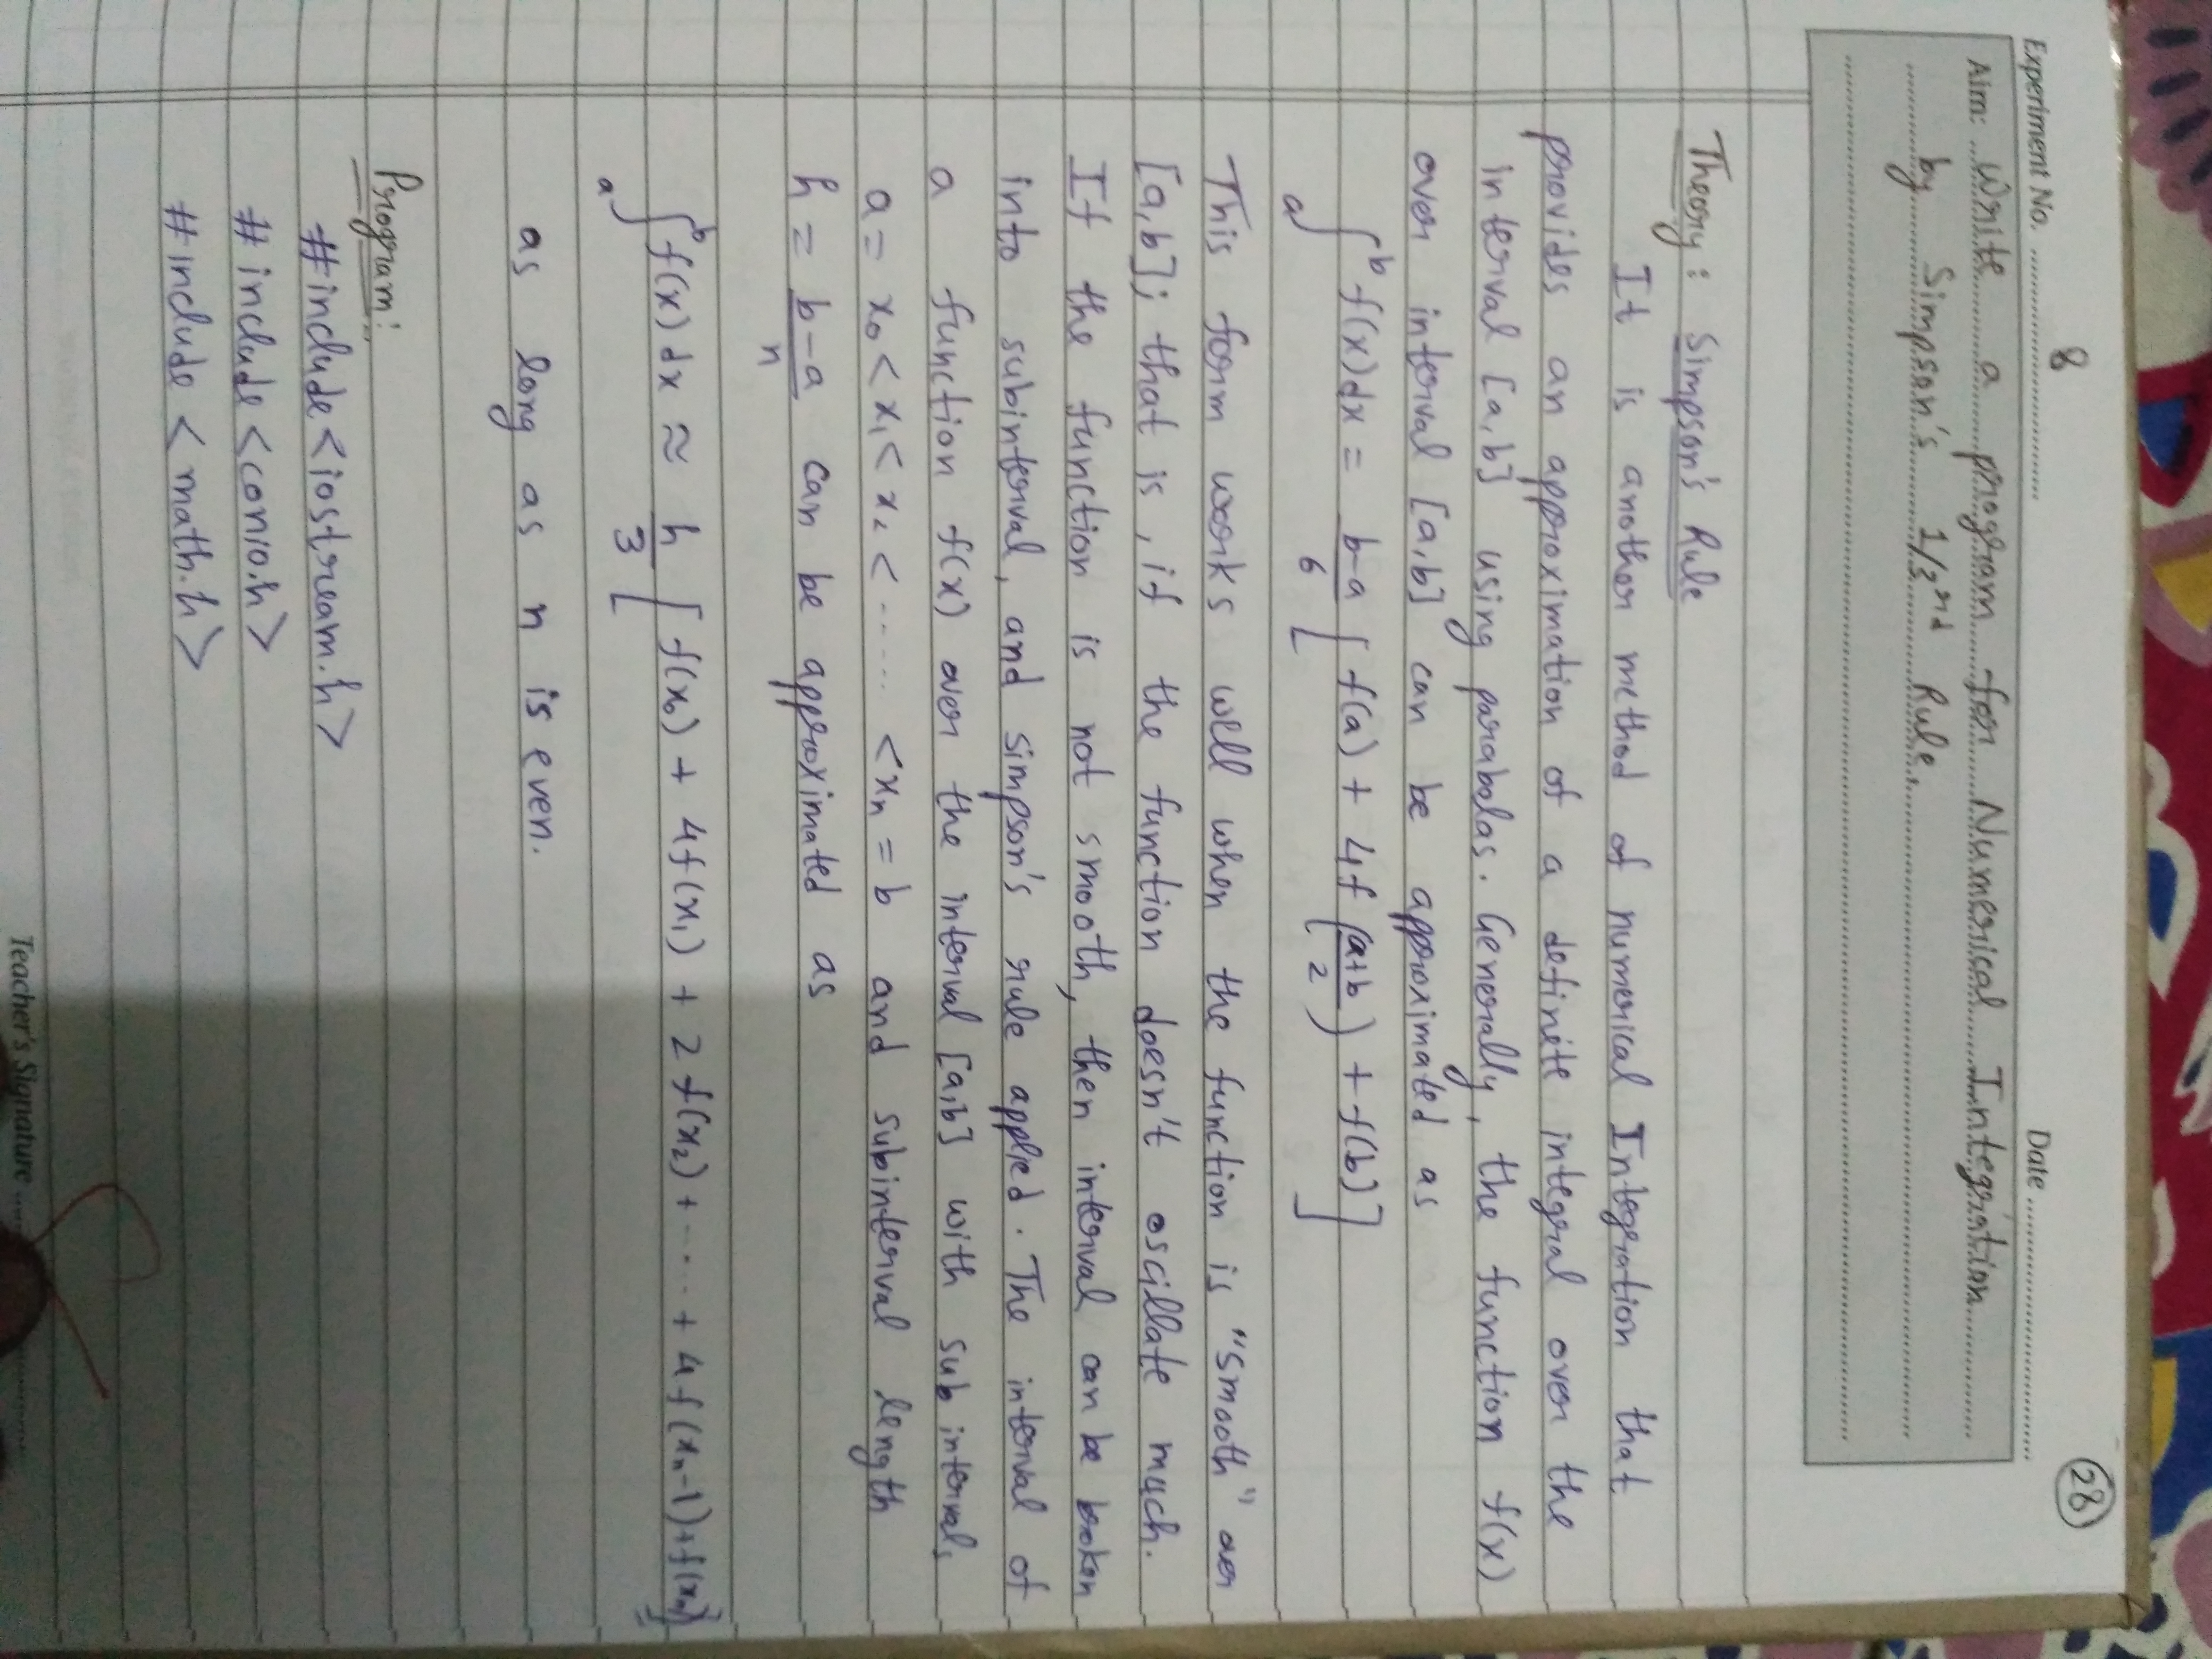 28
Experiment No. 8
Date
Aim: Write a program for Numerical Integration
by Simpson's 1/3rd Rule.
Theory: Simpson's Rule
It is another method of numerical Integration that
provides an approximation of a definite integral over the
interval [a,b] using parabolas. Generally, the function f(x)
over interval [a,b] can be approximated as
∫ₐᵇ f(x)dx = (b-a)/6 [ f(a) + 4f ((a+b)/2) + f(b) ]
This form works well when the function is "smooth" over
[a,b]; that is, if the function doesn't oscillate much.
If the function is not smooth, then interval can be broken
into subinterval, and simpson's rule applied. The interval of
a function f(x) over the interval [a,b] with sub intervals
a = x₀ < x₁ < x₂ < ...... < xₙ = b and subinterval length
h = (b-a)/n can be approximated as
∫ₐᵇ f(x) dx ≈ h/3 [ f(x₀) + 4f(x₁) + 2f(x₂) + ..... + 4f(xₙ-1) + f(xₙ) ]
as long as n is even.
Program:
#include <iostream.h>
# include <conio.h>
#include < math.h>
Teacher's Signature